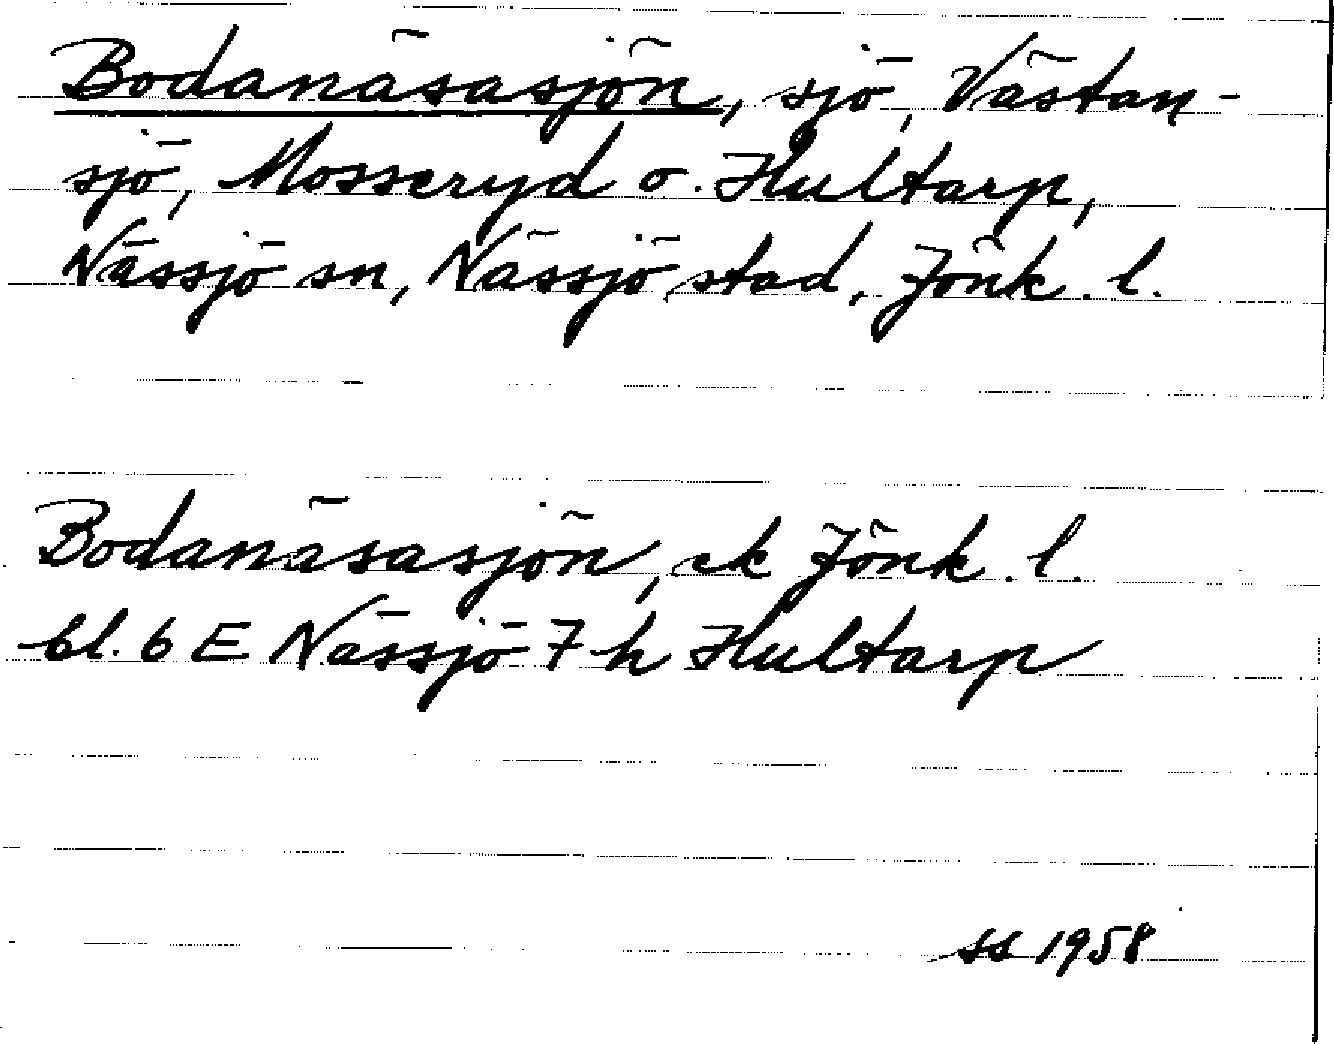 Bodanäsasjön, sjö, Västan-
sjö, Mosseryd o. Hultarp,
Nässjö sn, Nässjö stad, Jönk. l.
Bodanäsasjön, ek Jönk. l.
bl. 6 E Nässjö 7 h Hultarp
SS 1958